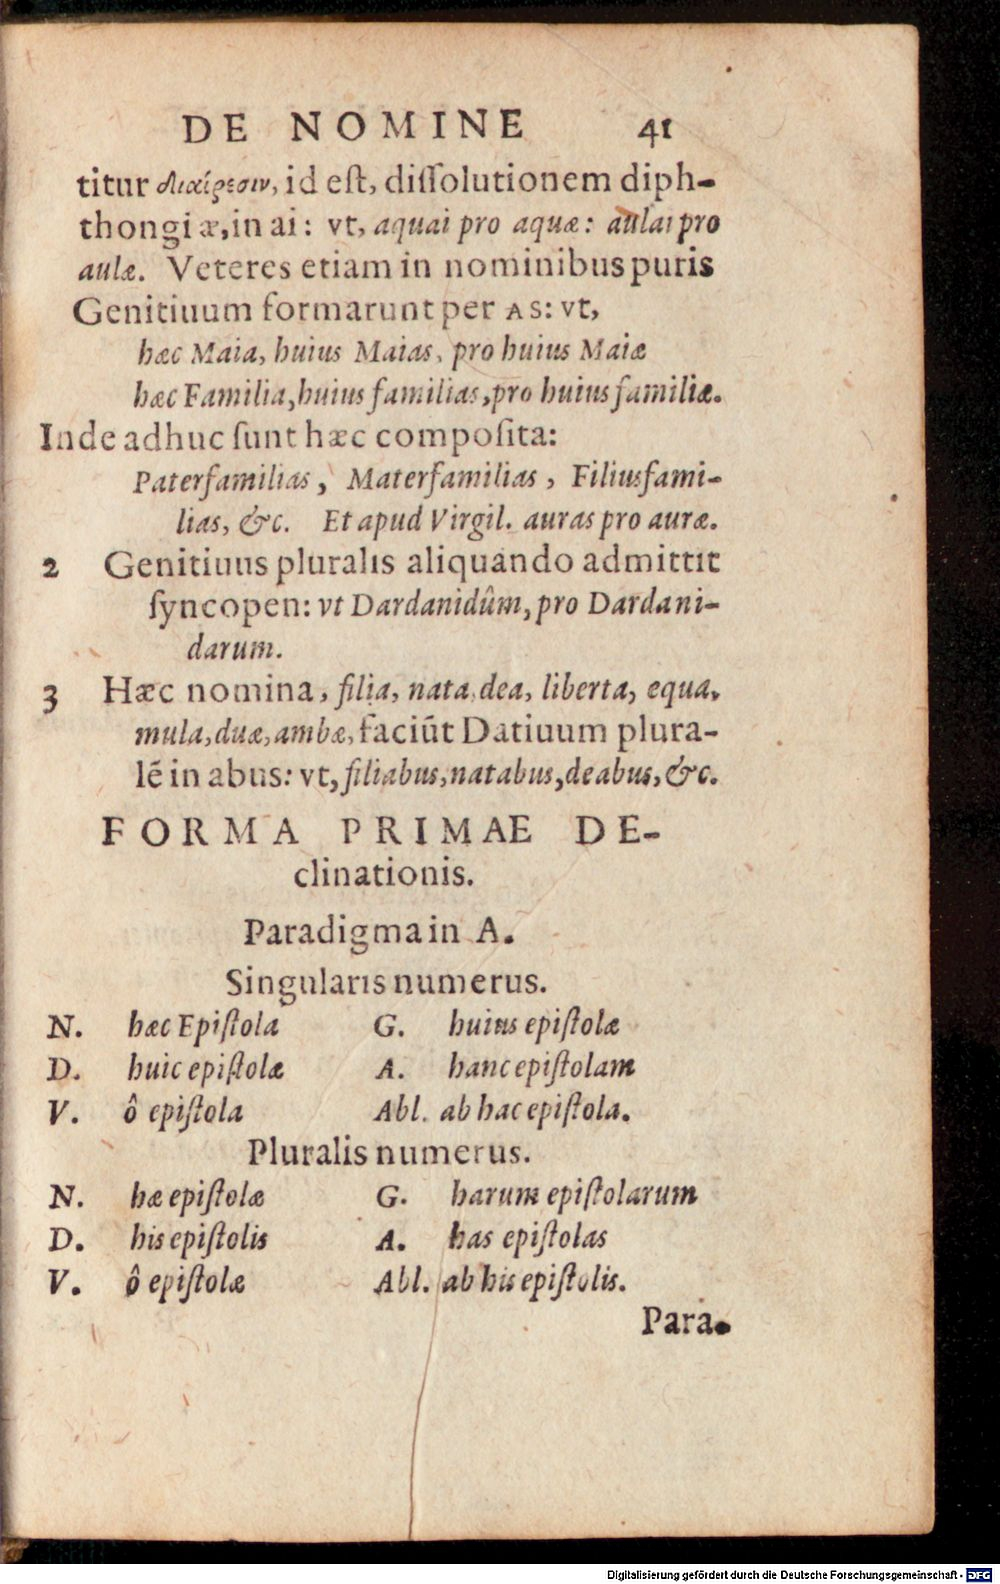 DE NOMINE 41
titur διαίρεσιν, id eſt, diſſolutionem diph-
thongi æ, in ai: vt, aquai pro aquæ: aulai pro
aulæ. Veteres etiam in nominibus puris
Genitiuum formarunt per AS: vt,
hæc Maia, huius Maias, pro huius Maiæ
hæc Familia, huius familias, pro huius familiæ.
Inde adhuc ſunt hæc compoſita:
Paterfamilias, Materfamilias, Filiusfami-
lias, &c. Et apud Virgil. auras pro auræ.
2 Genitiuus pluralis aliquando admittit
ſyncopen: vt Dardanidûm, pro Dardani-
darum.
3 Hæc nomina, filia, nata, dea, liberta, equa,
mula, duæ, ambæ, faciūt Datiuum plura-
lē in abus: vt, filiabus, natabus, deabus, &c.
FORMA PRIMAE DE-
clinationis.
Paradigma in A.
Singularis numerus.
N. hæc Epiſtola G. huius epiſtolæ
D. huic epiſtolæ A. hanc epiſtolam
V. ô epiſtola Abl. ab hac epiſtola.
Pluralis numerus.
N. hæ epiſtolæ G. harum epiſtolarum
D. his epiſtolis A. has epiſtolas
V. ô epiſtolæ Abl. ab his epiſtolis.
Para-
Digitalisierung gefördert durch die Deutsche Forschungsgemeinschaft - DFG